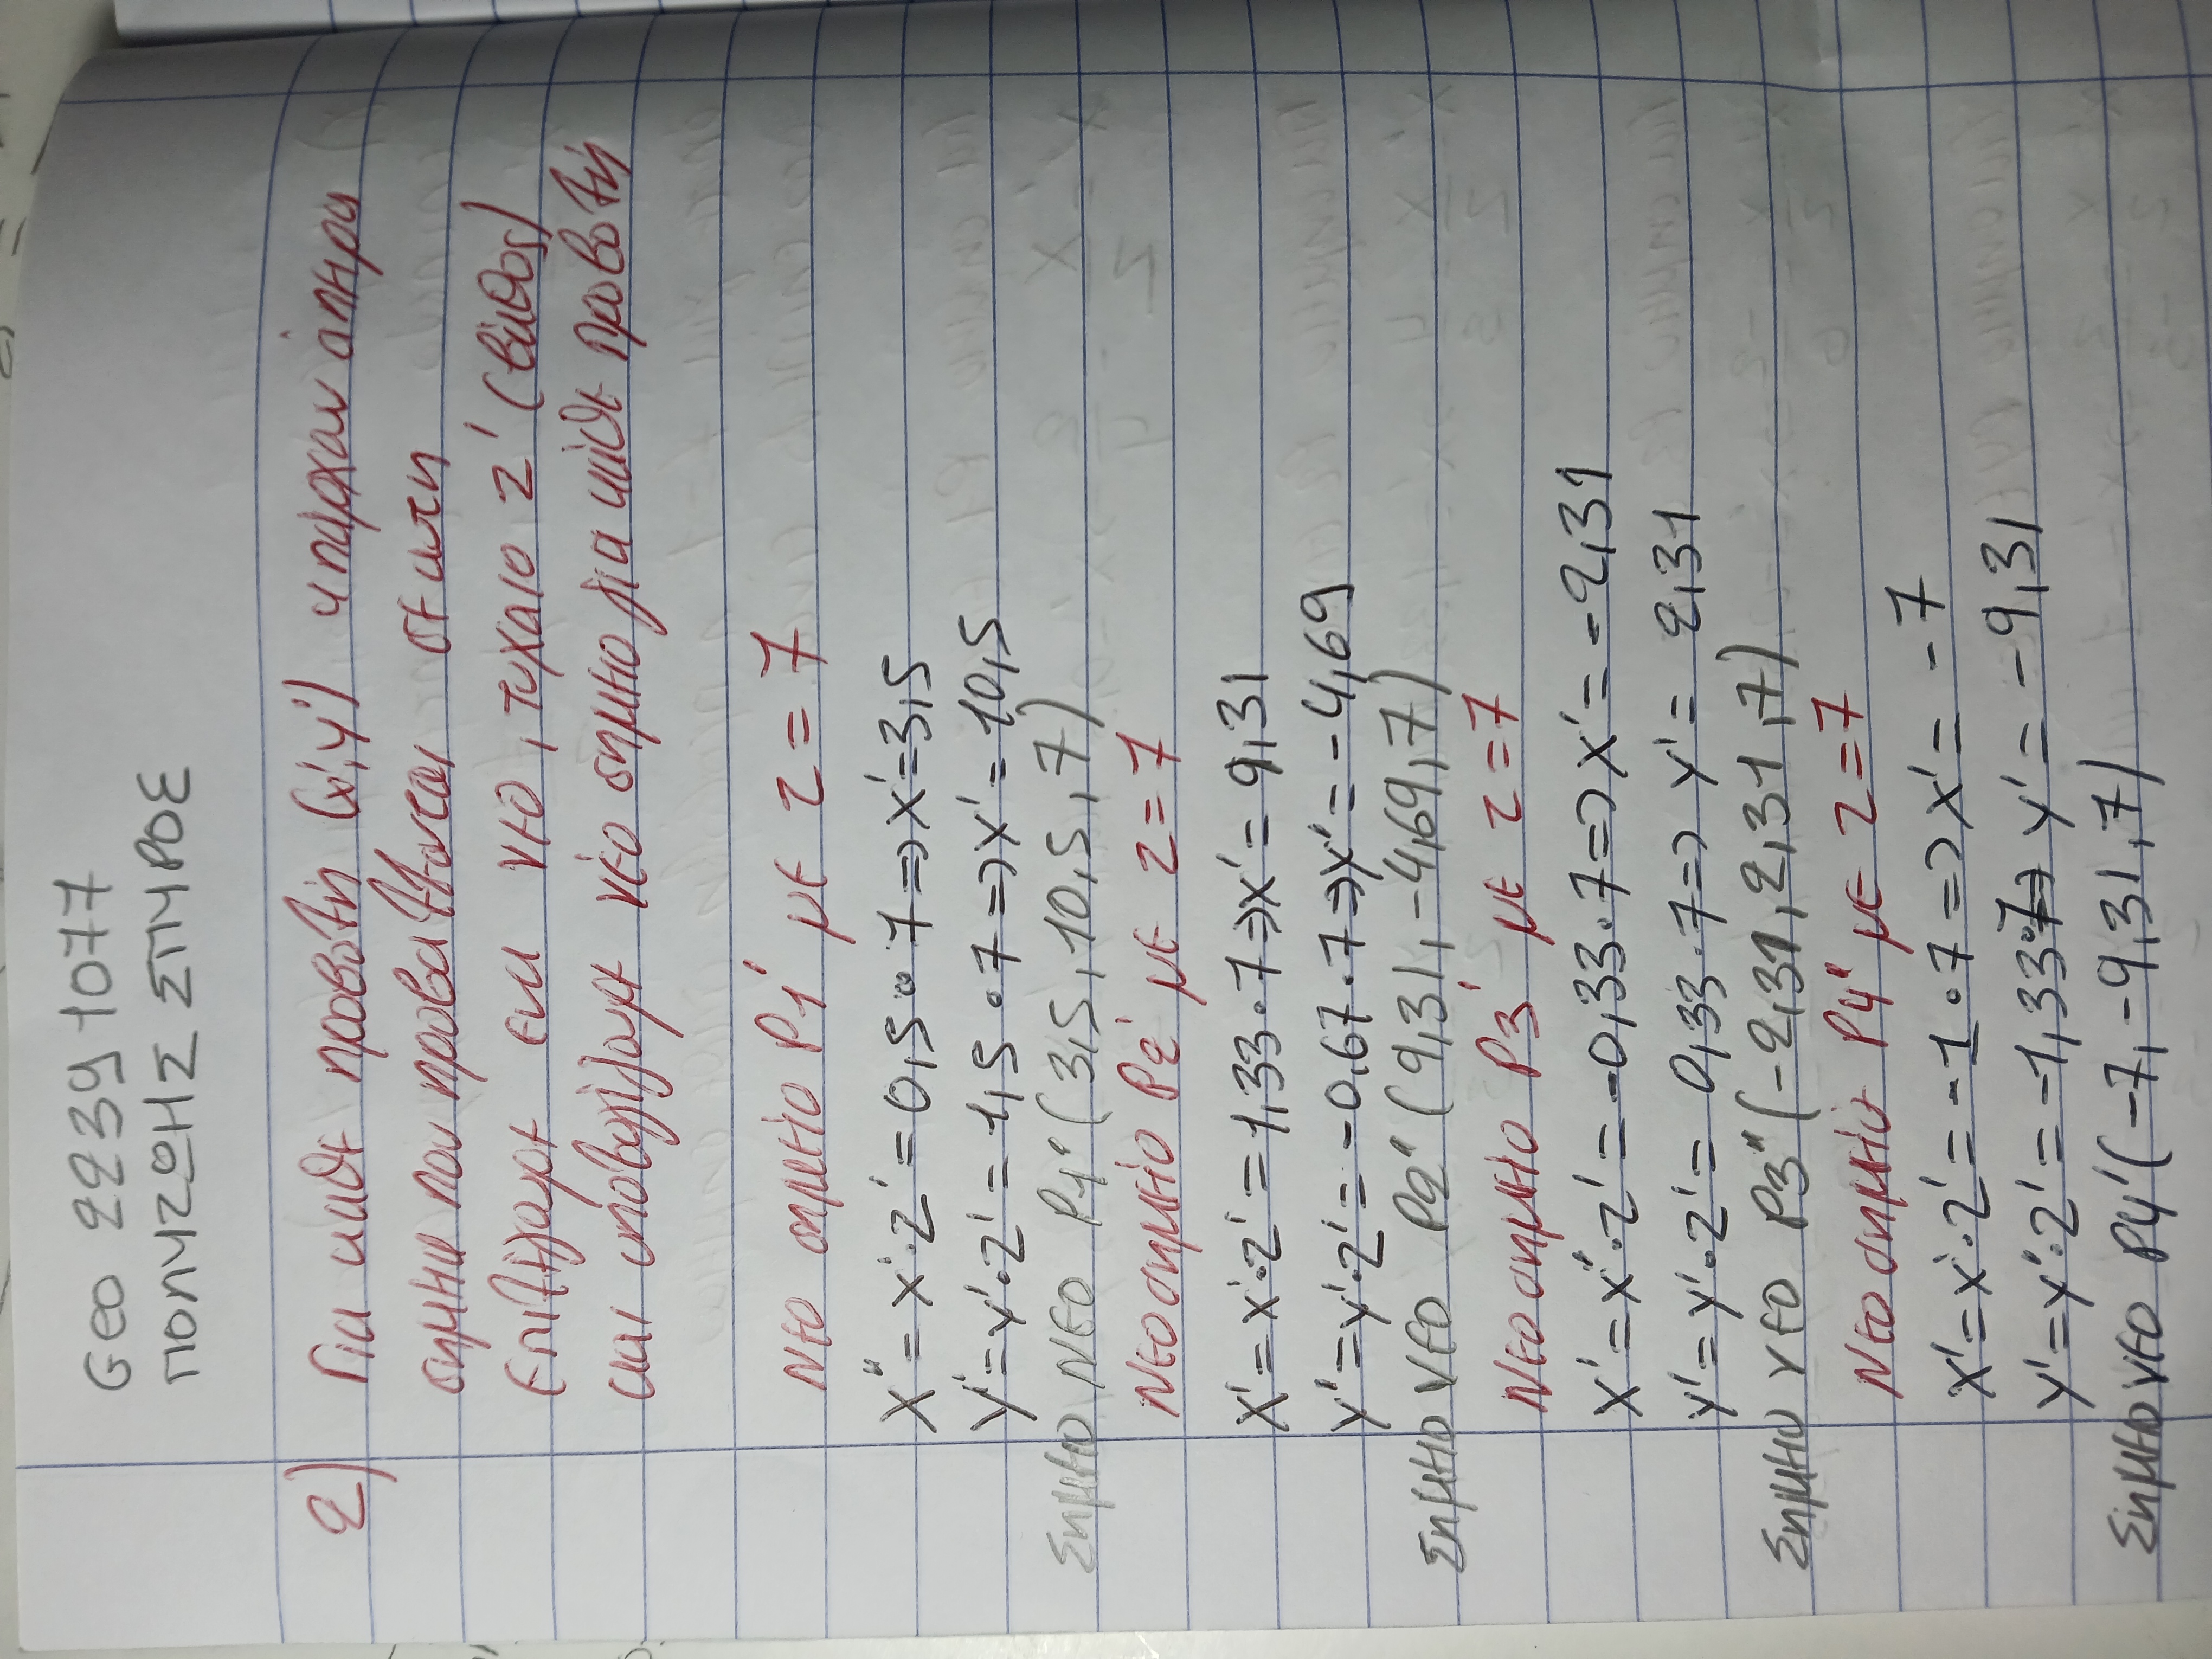 Geo 22391077
ΠΟΛΥΖΩΗΣ ΣΠΥΡΟΣ
2) Για κάθε προβολή (x',y') υπάρχουν άπειρα
σημεία που προβάλλονται σε αυτή
Επιλέγουμε ενα νεο, τυχαιο z' (βάθος)
και υπολογίζουμε νέο σημείο για κάθε προβολή
Νεο σημείο P1' με z = 7
X'' = x'·z' = 0,5·7 => x' = 3,5
y' = y'·z' = 1,5·7 => x' = 10,5
Σημείο ΝΕΟ P1'' (3,5, 10,5, 7)
Νεο σημείο P2' με z = 7
X' = x'·z' = 1,33·7 => x' = 9,31
y' = y'·z' = -0,67·7 => x' = -4,69
Σημείο νεο P2'' (9,31, -4,69, 7)
Νεο σημείο P3' με z = 7
X' = x'·z' = -0,33·7 => x' = -2,31
y' = y'·z' = 0,33·7 => y' = 2,31
Σημείο νεο P3'' (-2,31, 2,31, 7)
Νεο σημείο P4' με z = 7
X' = x'·z' = -1·7 => x' = -7
y' = y'·z' = -1,33·7 => y' = -9,31
Σημείο νεο P4' (-7, -9,31, 7)